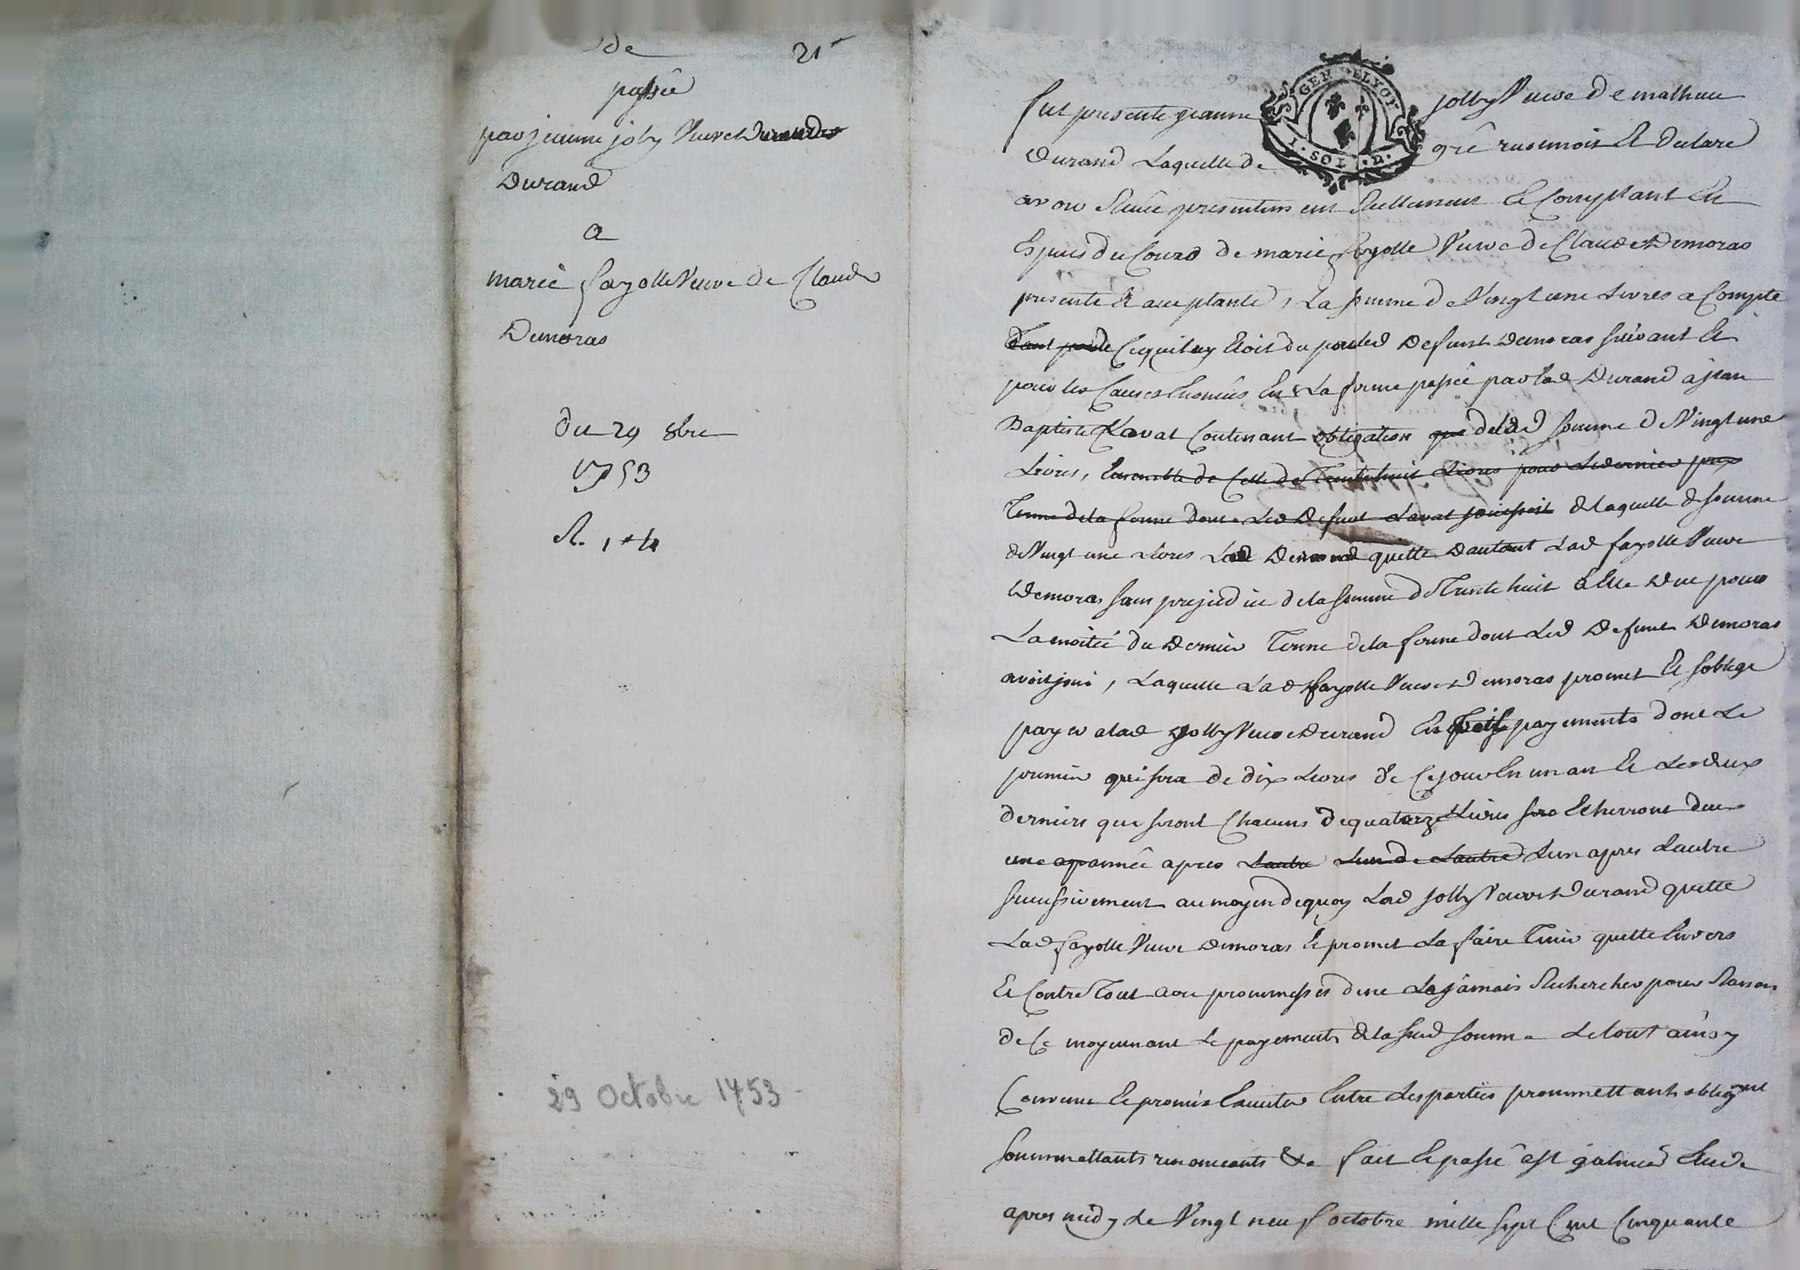 de 21
passée
par jeanne joly Veuve
Durand
a
marie fayolle Veuve de Claude
Demoras
du 29 8bre
1753
29 Octobre 1753
GEN DE LYON
1. SOL. D.
fut presente jeanne jolly Veuve de mathieu
Durand Laquelle de gré reconnoit Et declare
avoir Reçue presentement Reellement Et Comptant En
Especes du Cours de marie fayolle Veuve de Claude Demoras
presente Et acceptante, La somme de Vingt une Livres a Compte
Ce quil luy Etoit du par led Defunt Demoras suivant Et
pour les Causes Enoncées En La ferme passée par lad Durand a jean
Baptiste Ravat Contenant obligation de lad somme de Vingt une
Livres, Ensemble de Celle de Trente huit Livres pour Le dernier
Terme de la ferme dont Led Defunt Ravat jouissoit de laquelle d somme
de Vingt une Livres Lad quitte Dautant Lad fayolle Veuve
Demoras sans prejudice de la somme de Trente huit a Elle Due pour
La moitié du Dernier Terme de la ferme dont Led Defunt Demoras
avoit joui, Laquelle Lad fayolle Veuve Demoras promet Et soblige
payer a lad Jolly Veuve Durand En payements dont Le
premier qui sera de dix Livres de Ce jour En un an Et Les deux
derniers que seront Chacuns de quatorze Livres Echerront dans
une année apres Lautre Lun de Lautre Lun apres Lautre
successivement au moyen de quoy Lad Jolly Veuve Durand quitte
Lad fayolle Veuve Demoras Et promet La faire Tenir quitte Envers
Et Contre Tout avec promesses de ne La jamais Rechercher pour Raison
de Ce moyennant Le payements de la susd somme Le tout ainsy
Convenu Et promis Executer Entre Les parties prommettants obligeant
soummettants renonceants &a fait Et passé Etude
apres midy Le Vingt neuf octobre mille sept Cent Cinquante